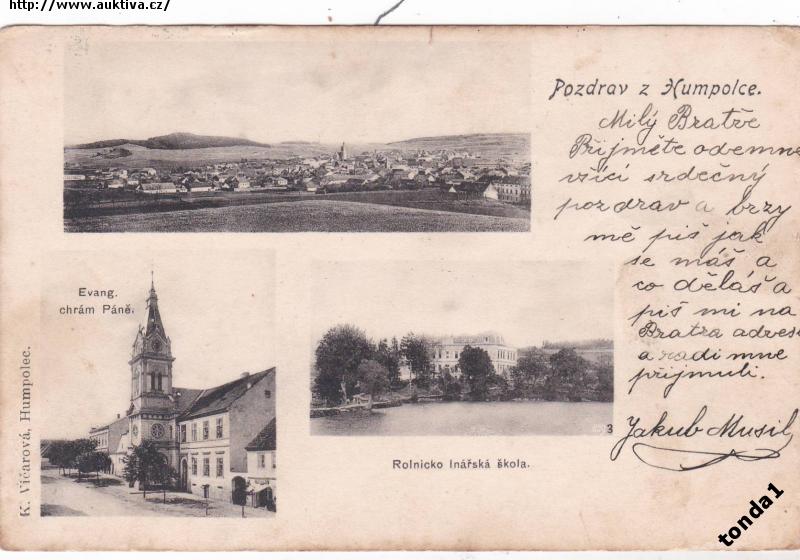 http://www.auktiva.cz/
Pozdrav z Humpolce.
Milý Bratře
Přijměte odemne
vřící srdečný
pozdrav a brzy
mě piš jak
se máš a
co děláš a
piš mi na
Bratra adrese
a radi mne
přijmuli.
Jakub Musil
Evang.
chrám Páně.
Rolnicko lnářská škola.
3
K. Vičarová, Humpolec.
tonda1